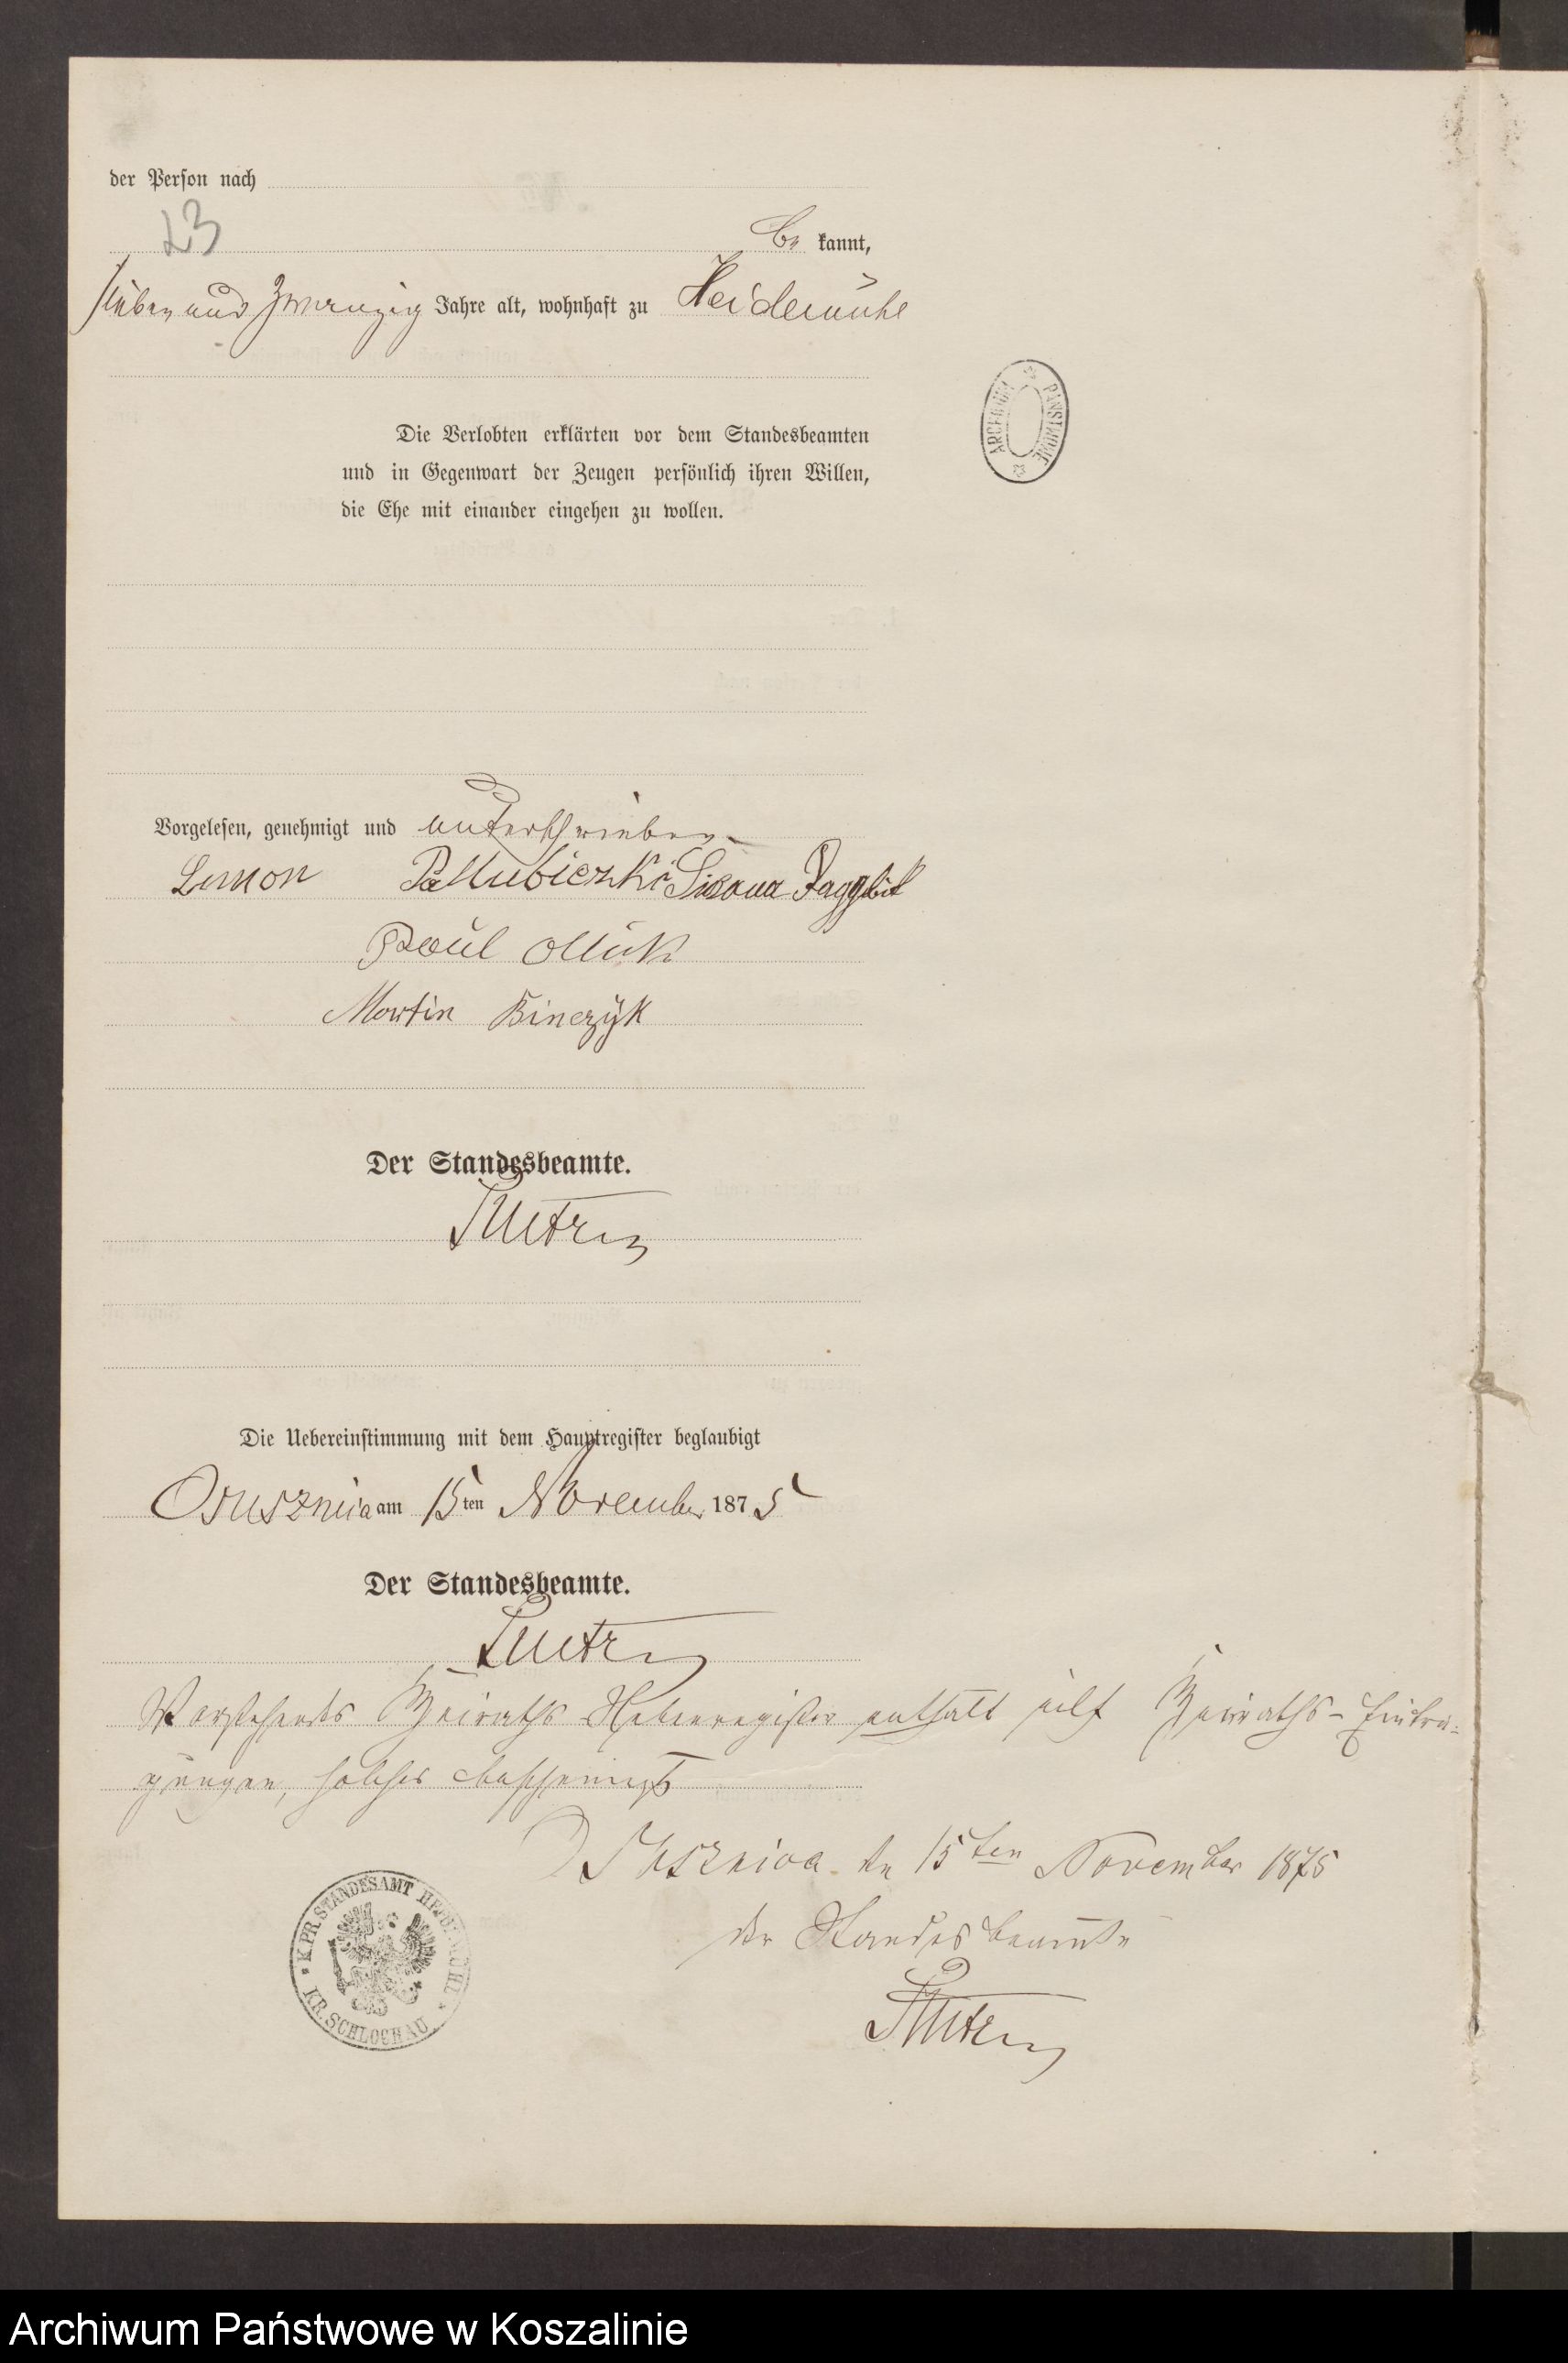 der Person nach
23
be kannt,
sieben und zwanzig Jahre alt, wohnhaft zu Heidemühl
ARCHIWUM PAŃSTWOWE
Die Verlobten erklärten vor dem Standesbeamten
und in Gegenwart der Zeugen persönlich ihren Willen,
die Ehe mit einander eingehen zu wollen.
Vorgelesen, genehmigt und unterschrieben
Simon Pallubiczki
Paul
Martin Binczÿk
Der Standesbeamte.
Die Uebereinstimmung mit dem Hauptregister beglaubigt
Osusznica am 15ten November 1875
Der Standesbeamte.
Vorstehendes Heiraths-Nebenregister enthält eilf Heiraths-Eintra-
gungen, solches bescheinigt
Osusznica den 15ten November 1875
der Standesbeamte
K.PR.STANDESAMT
KR.SCHLOCHAU
Archiwum Państwowe w Koszalinie